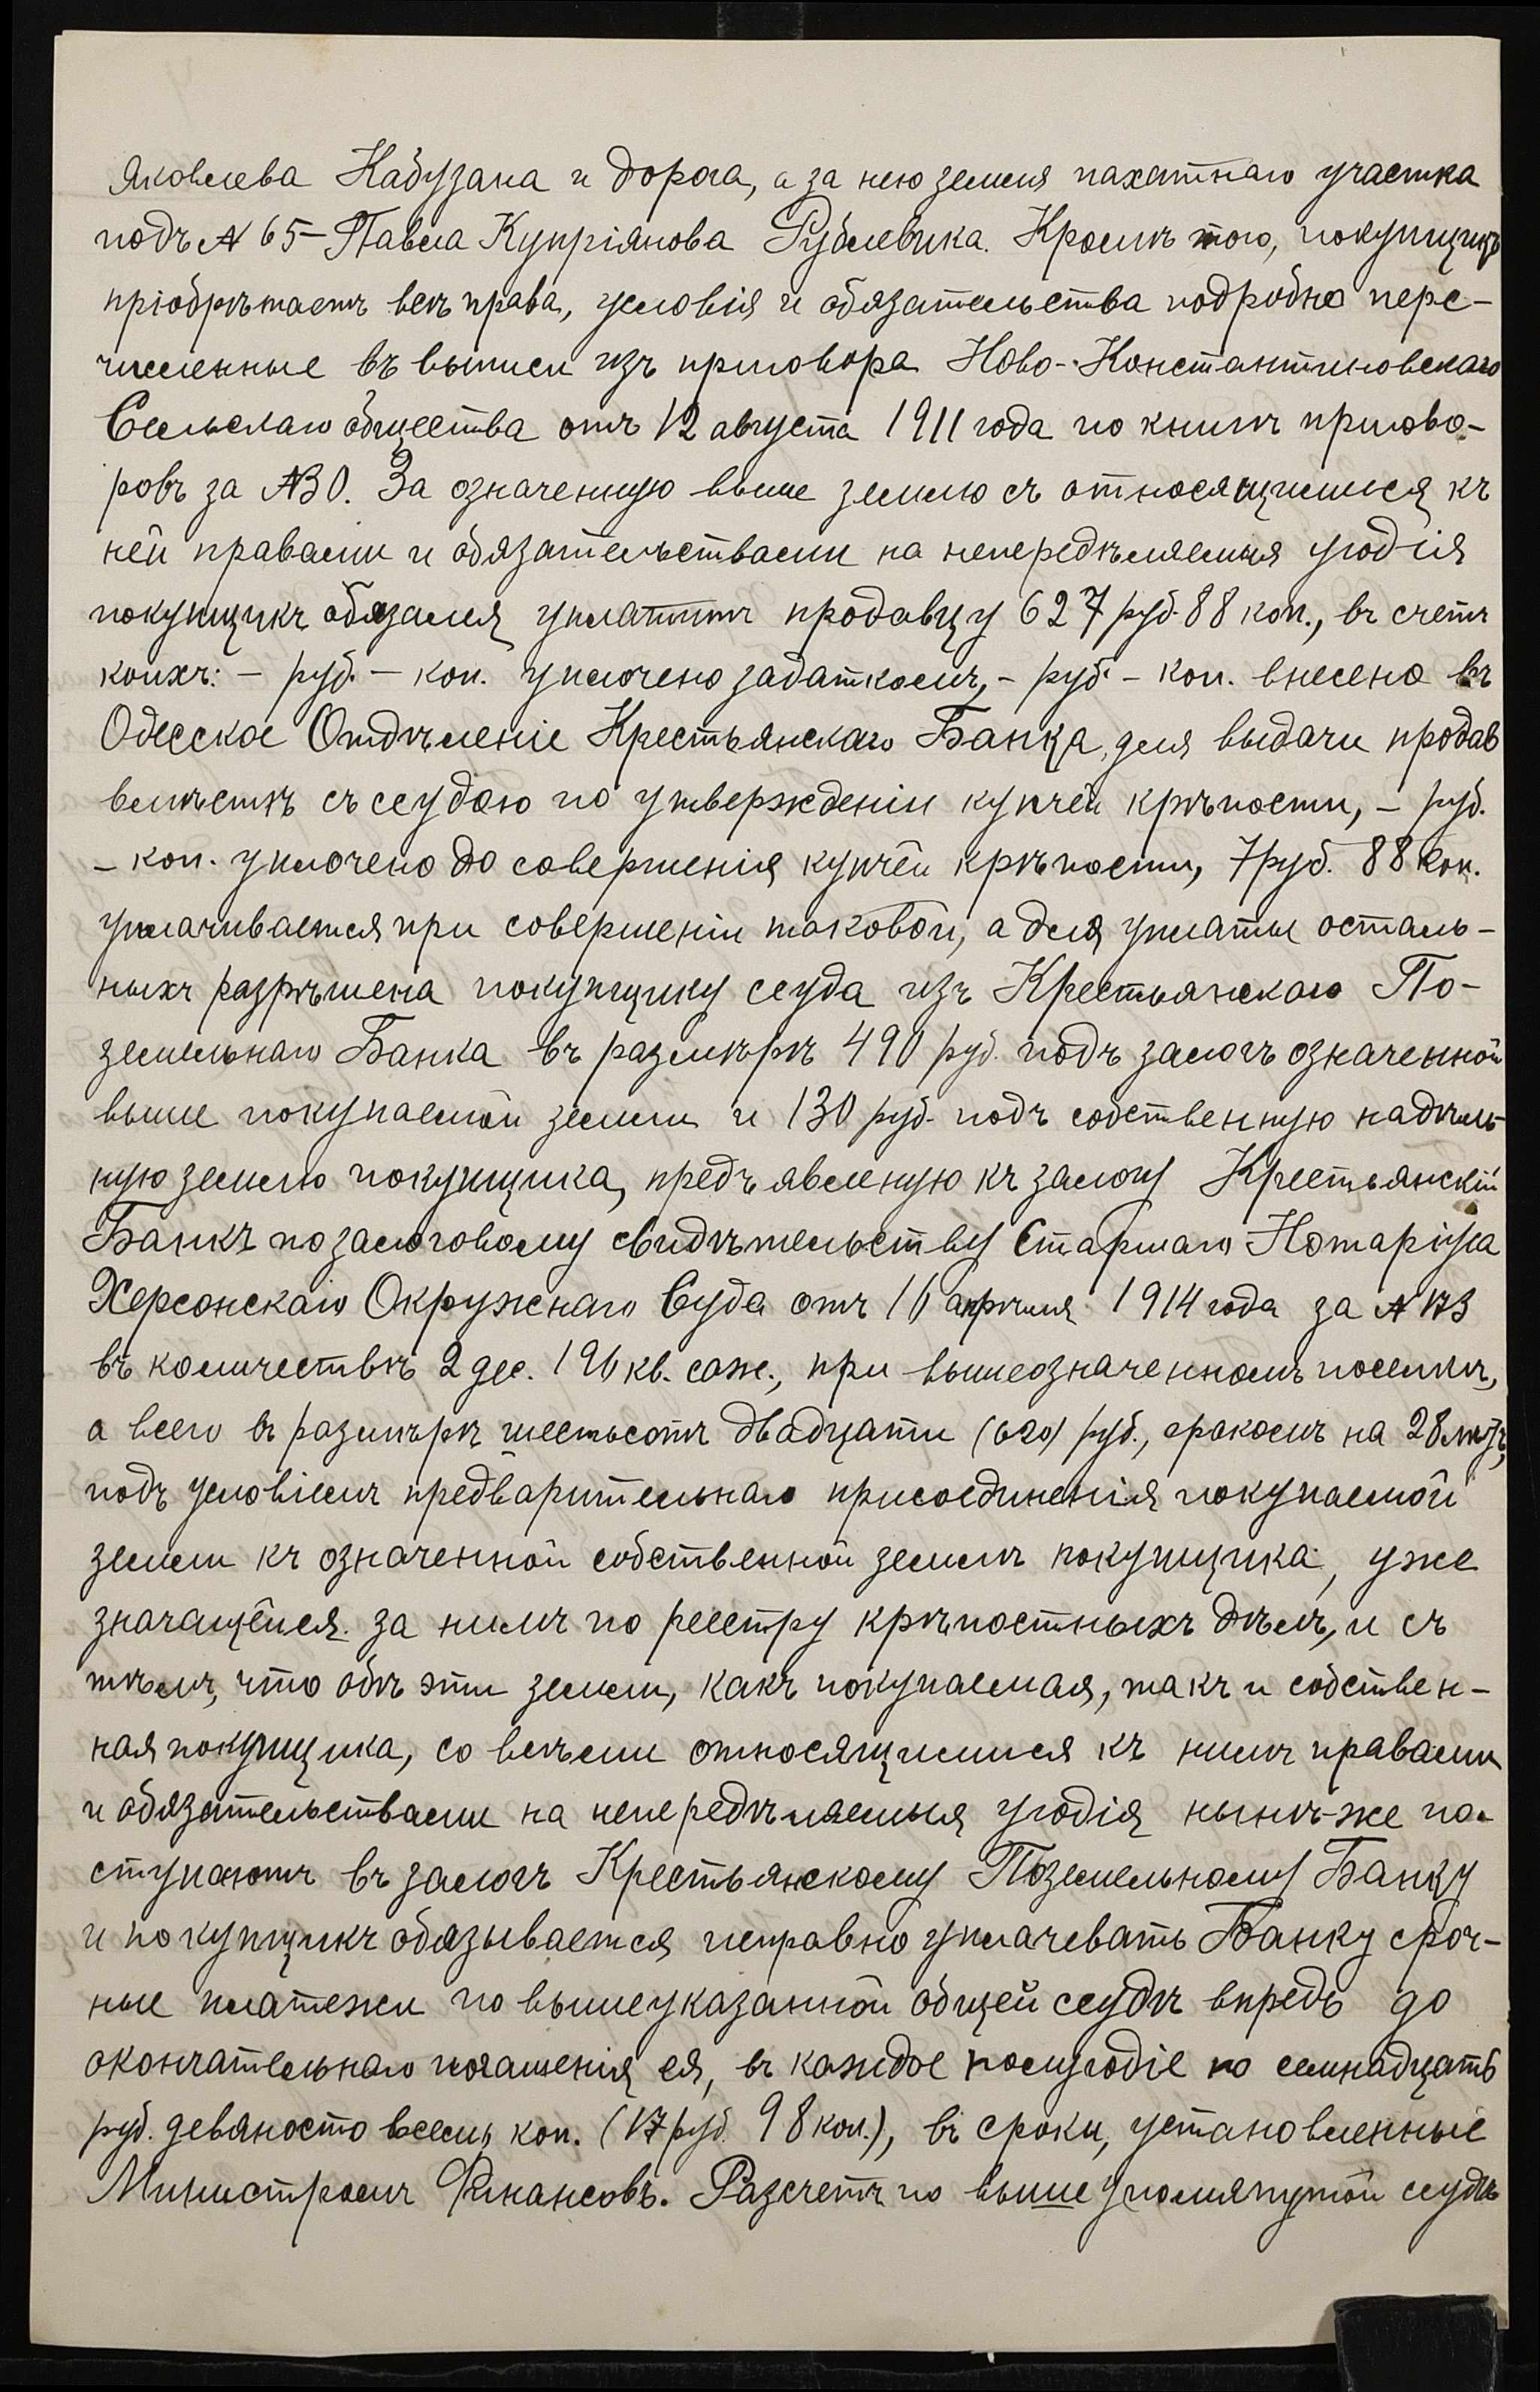 Яковлева Кабузана и дорога, а за нею земля пахатнаго участка
подъ № 65 – Павла Купріянова Рублевика. Кромѣ того, покупщикъ
пріобрѣтаетъ всѣ права, условія и обязательства подробно пере-
численные въ выписи изъ приговора Ново-Константиновскаго
Сельскаго общества отъ 12 августа 1911 года по книгѣ пригово-
ровъ за №30. За означенную выше землю съ относящимися къ
ней правами и обязательствами на непередѣляемыя угодія
покупщикъ обязался уплатить продавцу 627 руб. 88 коп., въ счетъ
коихъ: – руб. – коп. уплочено задаткомъ, – руб. – коп. внесено въ
Одесское Отдѣленіе Крестьянскаго Банка, для выдачи продав
вмѣстѣ съ ссудою по утвержденіи купчей крѣпости, – руб.
– коп. уплочено до совершенія купчей крѣпости, 7 руб. 88 коп.
уплачивается при совершеніи таковой, а для уплаты осталь-
ныхъ разрѣшена покупщику ссуда изъ Крестьянскаго По-
земельнаго Банка въ размѣрѣ 490 руб. подъ залогъ означенной
выше покупаемой земли и 130 руб. подъ собственную надѣль-
ную землю покупщика, предъявленую къ залогу Крестьянскій
Банкъ по залоговому свидѣтельству Старшаго Нотаріуса
Херсонскаго Окружнаго Суда отъ 16 апрѣля 1914 года за № 173
въ количествѣ 2 дес. 196 кв. саж., при вышеозначенномъ поселкѣ,
а всего въ размѣрѣ шестьсотъ двадцати (620) руб., срокомъ на 28 лѣтъ,
подъ условіемъ предварительнаго присоединенія покупаемой
земли къ означенной собственной землѣ покупщика, уже
значащейся за нимъ по реестру крѣпостныхъ дѣлъ, и съ
тѣмъ, что обѣ эти земли, какъ покупаемая, такъ и собствен-
ная покупщика, со всѣми относящимися къ нимъ правами
и обязательствами на непередѣляемыя угодія нынѣ-же по-
ступаютъ въ залогъ Крестьянскому Поземельному Банку
и покупщикъ обязывается исправно уплачевать Банку сроч-
ные платежи по вышеуказанной общей ссудѣ впредь до
окончательнаго погашенія ея, въ каждое полугодіе по семнадцать
руб. девяносто восемь коп. (17 руб. 98 коп.), въ сроки, установленные
Министромъ Финансовъ. Разсчетъ по выше упомянутой ссудѣ